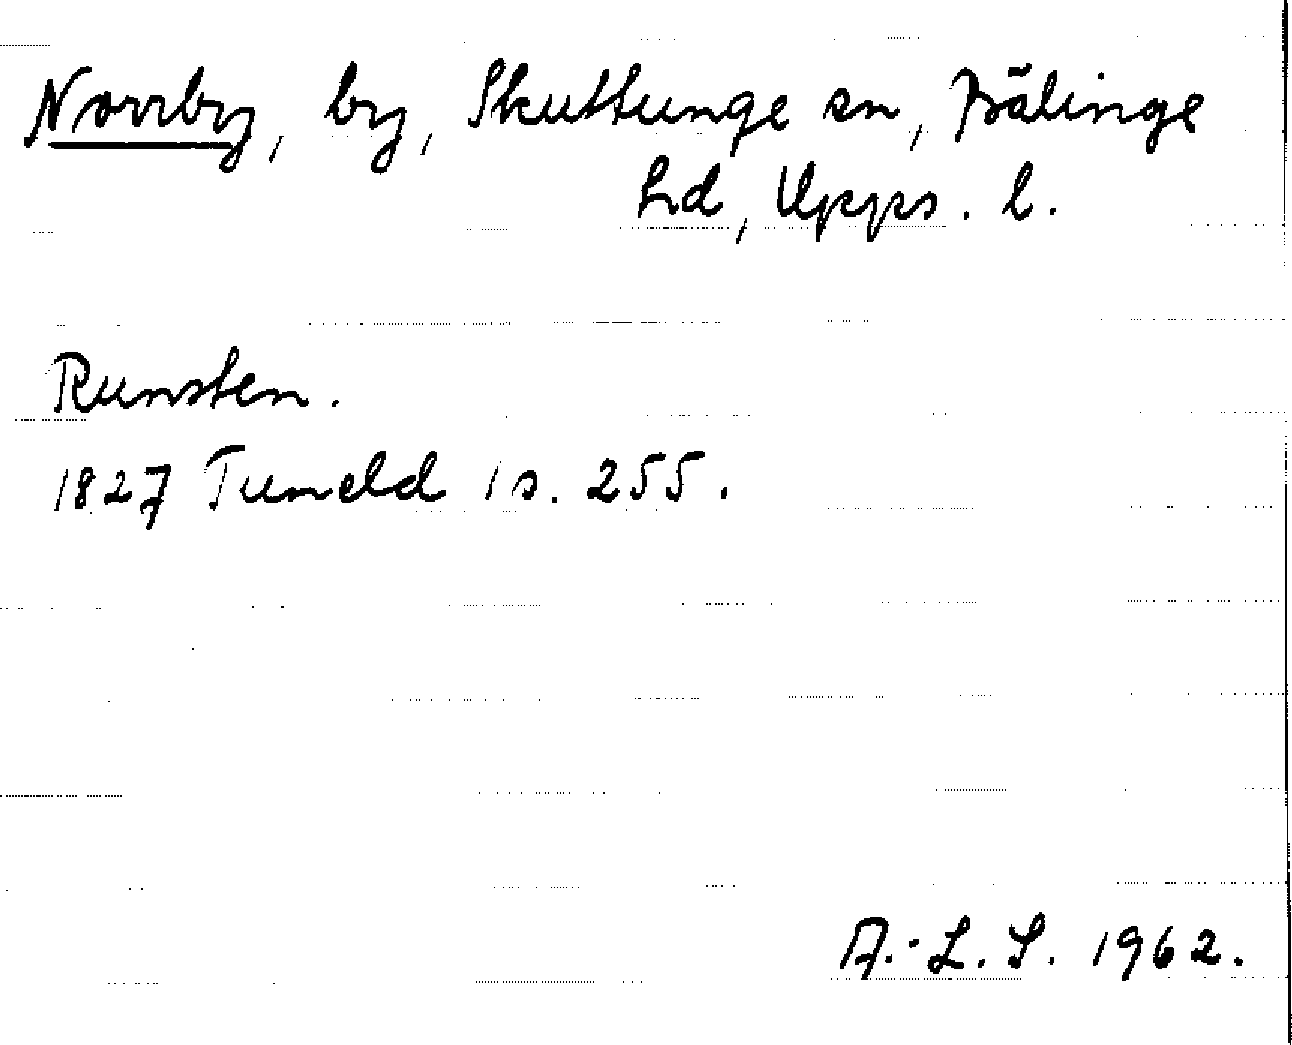 Norrby, by, Skuttunge sn, Bälinge
hd, Upps. l.
Runsten.
1827 Tuneld 1 s. 255.
A.-L. S. 1962.